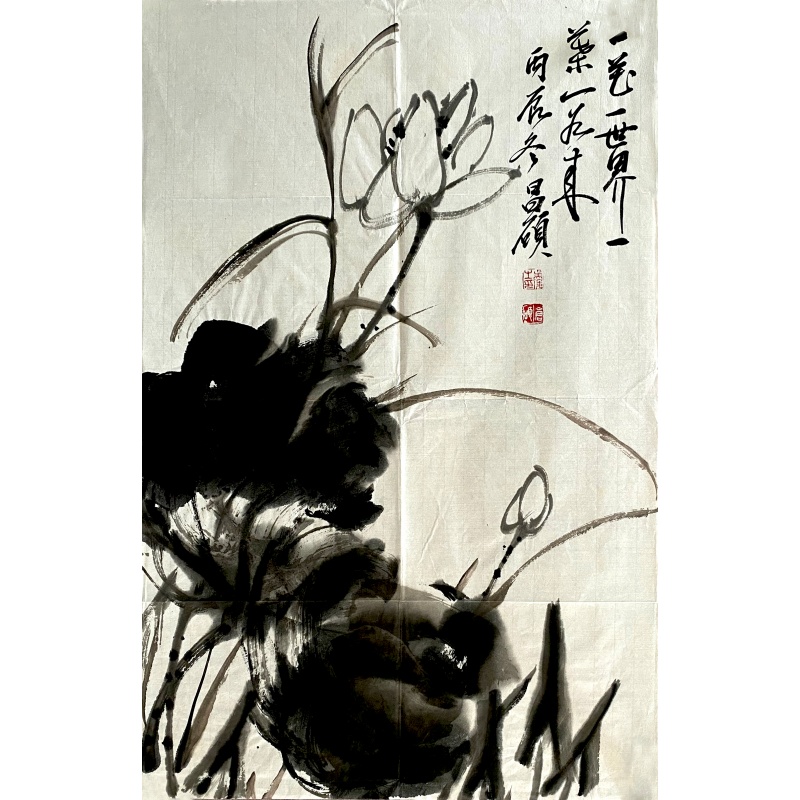 一花一世界一
葉一如來
丙辰冬昌碩